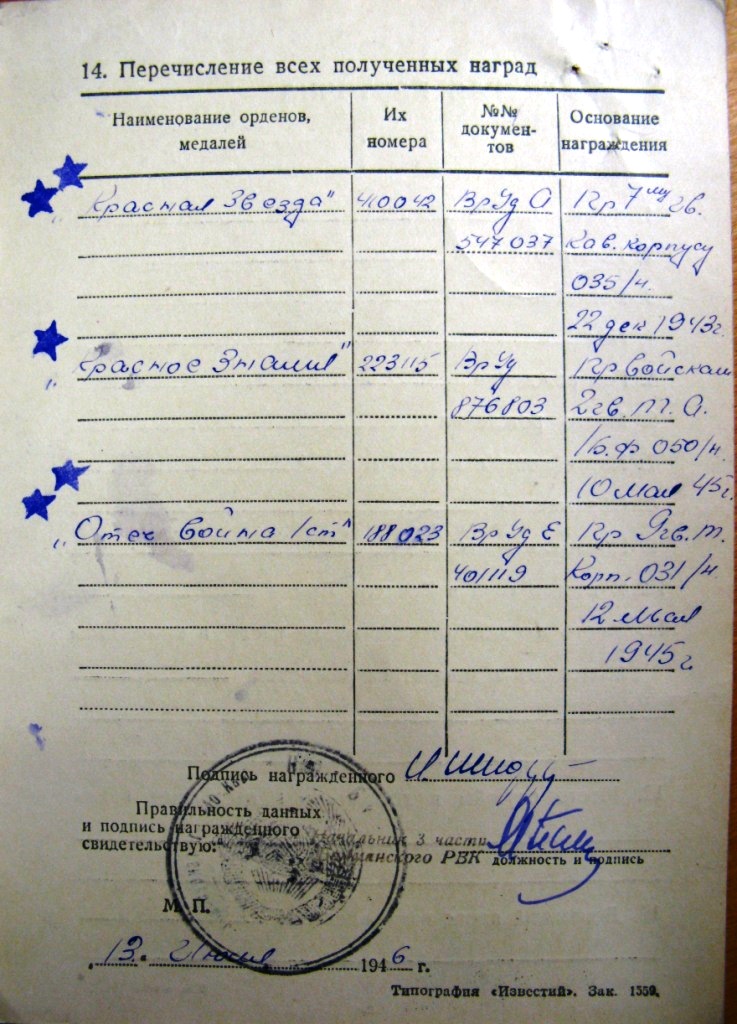 14. Перечисление всех полученных наград
Наименование орденов, медалей
Их номера
№№ документов
Основание награждения
„Красная Звезда" 410042 ВрУд А Пр 7му гв.
547037 Кав. корпусу
035/н.
22 дек 1943г.
„Красное Знамя" 223115 ВрУд Пр войскам
876803 2гв. Т. А.
1Б.Ф 050/н.
10 Мая 45г.
„Отеч война 1ст" 188023 ВрУд Е Пр 9гв. т.
401119 Корп. 031/н.
12 Мая
1945г
Подпись награжденного
Правильность данных
и подпись награжденного
свидетельствую:
Начальник 3 части
РВК должность и подпись
М. П.
13. 1946 г.
Типография «Известий». Зак. 1559.